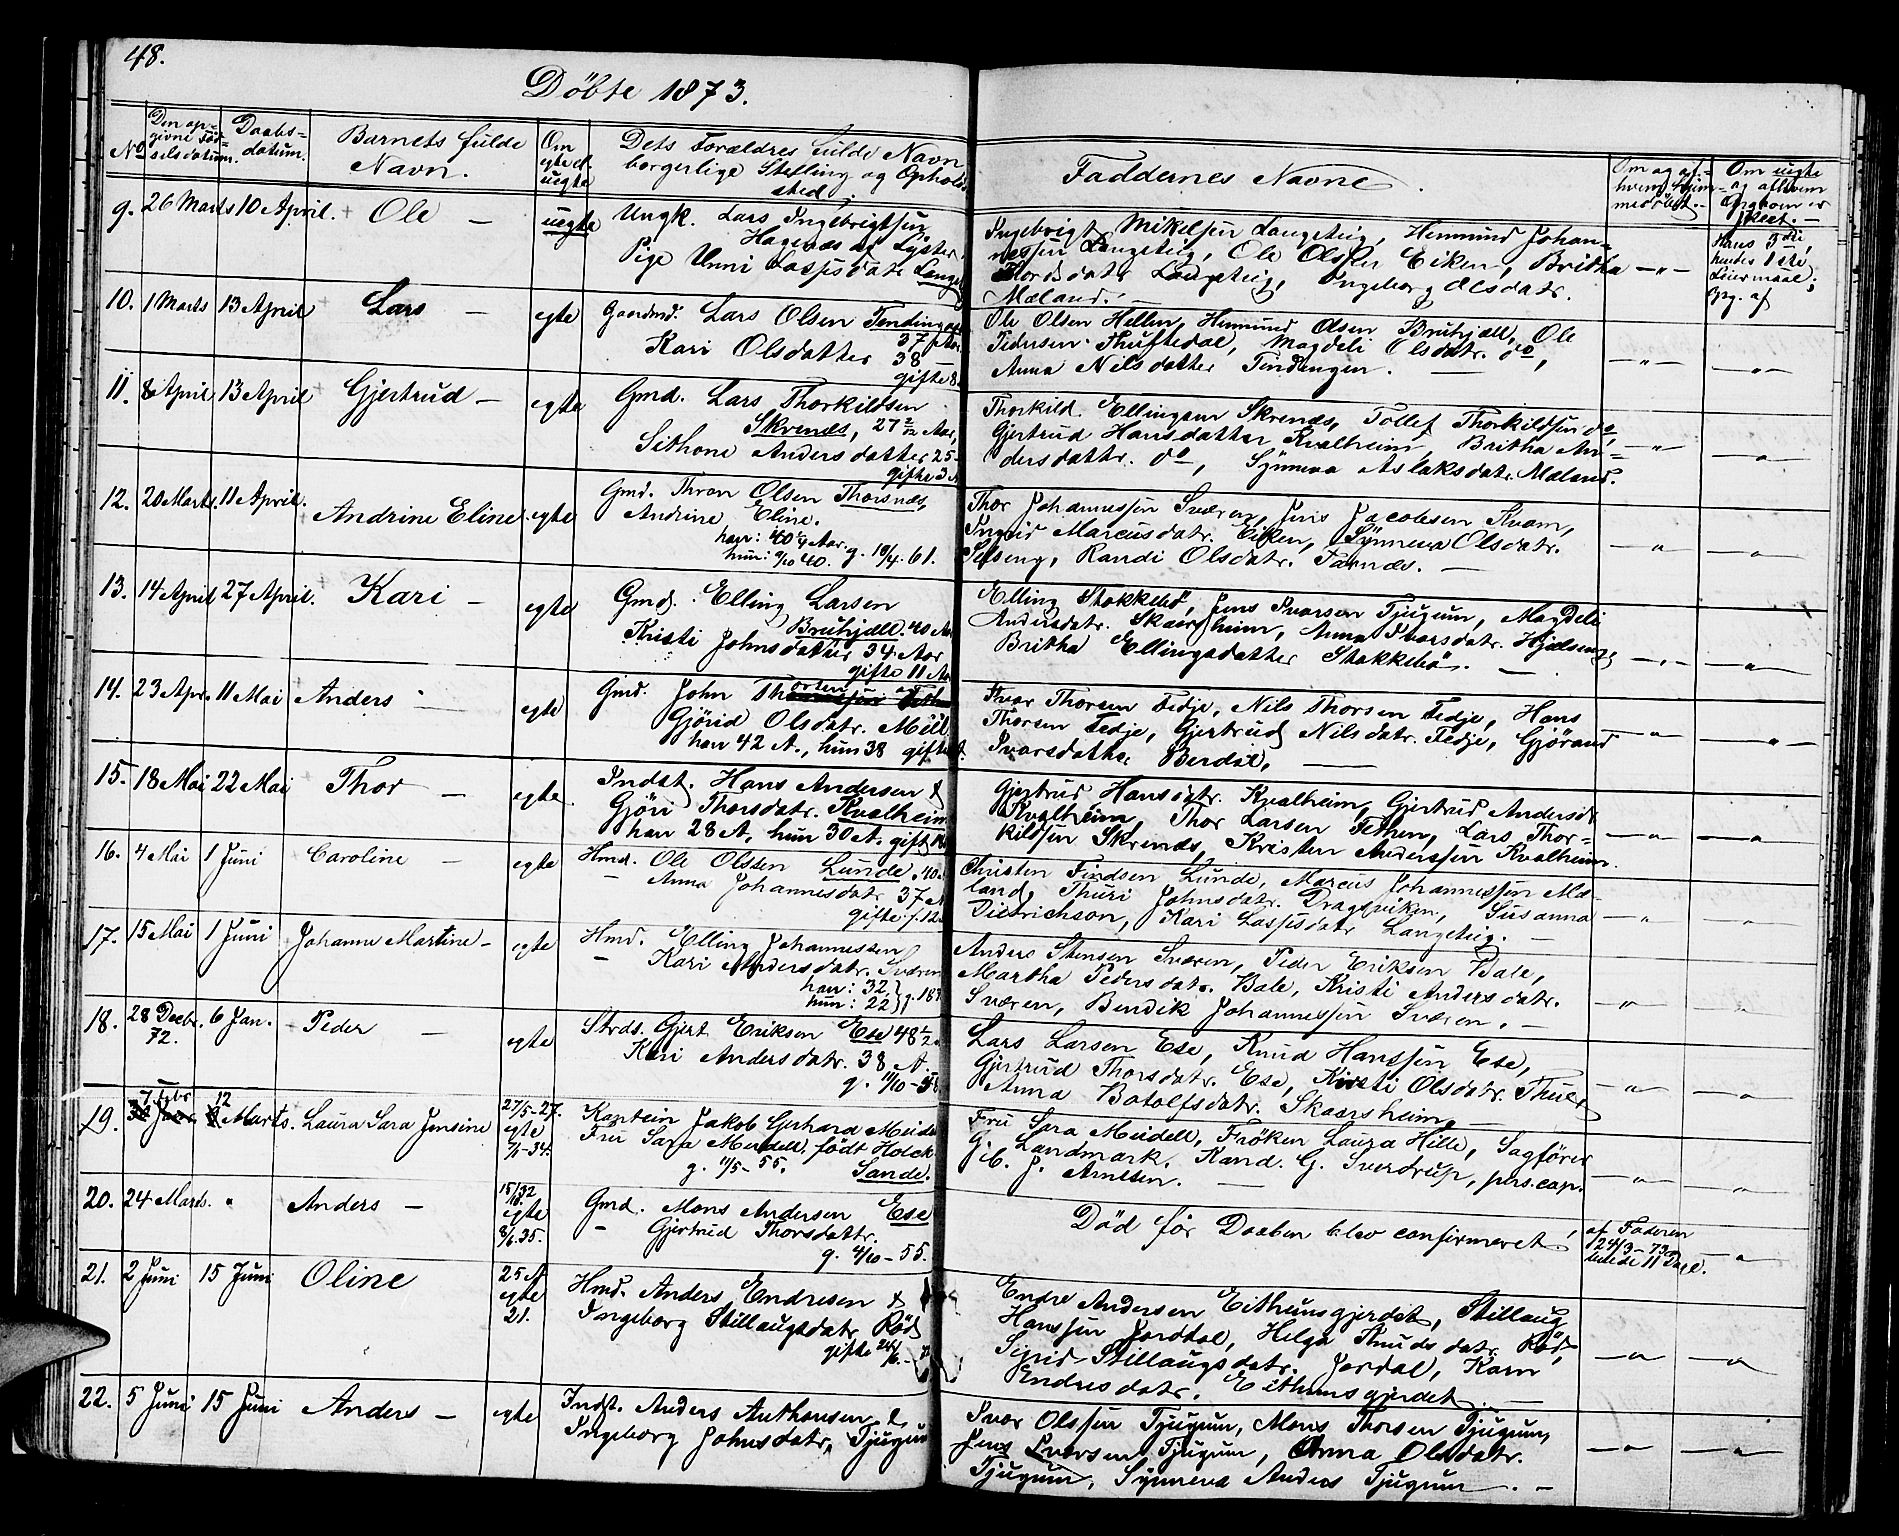 48.
Döbte 1873.
No
Den op-
givne Fød-
selsdatum.
Daabs-
datum.
Barnets fulde
Navn.
Om
egte el.
uegte
Dets Forældres fulde Navn
borgerlige Stilling og Opholds
sted.
Faddernes Navne.
Om og af
hvem
Om uegte
og
9. 26 Marts 10 April. Ole — uegte
Ungk. Lars Ingebrigtsen
Hagenæs af Lyster.
Pige Unni Lassesdatr
Ingebrigt Mikelsen Langeteig, Hemmund Johan-
nessen Langeteig, Ole Olssen Eiken, Britha
Thordsdatr Langeteig, Ingeborg Olsdatr.
Mæland.
—"—
Hans 3die,
hendes 1ste
Leiermaal;
Opg. af
10. 1 Marts 13 April Lars — egte
Gaardmd. Lars Olsen Tendingen
37 Aar.
Kari Olsdatter 38
gifte 8.
Ole Olsen Hellen, Hemmund Olsen Bruhjell, Ole
Pedersen Thuftedal, Magdeli Olsdatr. do,
Anna Nilsdatter Tendingen. —
—"— —"—
11. 8 April 13 April Gjertrud — egte
Gmd. Lars Thorkildsen
Skrenæs, 27 Aar,
Sithone Andersdatter 25
gifte 3
Thorkild Ellingsen Skrenæs, Tollef Thorkildsen do,
Gjertrud Hansdatter Kvalheim, Britha An-
dersdattr. do, Synneva Aslaksdatr. Mæland.
—"— —"—
12. 20 Marts. 11 April. Andrine Eline. egte
Gmd. Thron Olsen Thorsnæs,
Andrine Eline.
han: 40 Aar.
hun: 40. g. 10/4. 61.
Thor Johannessen Sværen, Jens Jacobsen Kvam,
Ingrid Marcusdatr. Eiken, Synneva Olsdatr.
Selseng, Randi Olsdatr. Farnæs. —
—"— —"—
13. 14 April 27 April. Kari — egte
Gmd. Elling Larsen
Bruhjell. 40 Aar
Kristi Johnsdatter 34 Aar
gifte 11 Aar
Elling Stokkebö, Jens Ivarsen Tjugum, Magdeli
Andersdatr. Skaarsheim, Anna Ivarsdatr.
Britha Ellingsdatter Stokkebö. —
—"— —"—
14. 23 Apr. 11 Mai Anders — egte
Gmd. John
Gjörid Olsdatr.
han 42 A., hun 38 gifte
Ivar Thorsen Tedje, Nils Thorsen Tedje, Hans
Thorsen Tedje, Gjertrud Nilsdatr. Tedje, Gjörand
Ivarsdatter Berdal, —
—"— —"—
15. 18 Mai 22 Mai Thor — egte
Indst. Hans Andersen &
Gjöri Thorsdatr. Kvalheim
han 28 A, hun 30 A. gift
Gjertrud Hansdatr. Kvalheim, Gjertrud Andersdr
Kvalheim, Thor Larsen Fethen, Lars Thor-
kildsen Skrenæs, Kristen Anderssen Kvalheim.
—"— —"—
16. 4 Mai 1 Juni Caroline — egte
Hmd. Ole Olsen Lunde, 40.
— Anna Johannesdatr. 37
gifte
Christen Findsen Lunde, Marcus Johannessen Mæ-
land, Thuri Johnsdatr. Dragsviken, Susanna
Diedrichson, Kari Lassesdatr Langeteig. —
—"— —"—
17. 15 Mai 1 Juni Johanne Martine — egte
Hmd. Elling Johannessen
— Kari Andersdatr. Sværen
han: 32
hun: 22
Anders Stensen Sværen, Peder Eriksen Bale,
Martha Pedersdatr. Bale, Kristi Andersdatr.
Sværen, Bendik Johannessen Sværen. —
—"— —"—
18. 28 Decbr. 72. 6 Jan. Peder — egte
Strds. Gjert Eriksen Ese 48½
Kari Andersdatr. 38 A.
g. 11/10 - 58
Lars Larsen Ese, Knud Hanssen Ese,
Gjertrud Thorsdatr. Ese, Kirsti Olsdatr. Thue,
Anna Botolfsdatr. Skaarsheim, —
—"— —"—
19. 7 Febr 12 Marts. Laura Sara Jensine
27/5-27.
egte
7/1-34.
Kaptein Jakob Gerhard Meidell
Fru Sara Meidell, født Holck
g. 11/5 - 55. Sande.
Fru Sara Meidell, Fröken Laura Hille, Sagfører
G. Landmark. Kand. G. Sverdrup, pers. cap.
C. J. Arnesen. —
—"— —"—
20. 24 Marts. " Anders —
15/11 32
egte
8/6. 35.
Gmd. Mons Andersen Ese
— Gjertrud Thorsdatr.
g. 4/10 - 55.
Död för Daaben blev confirmeret,
af Faderen
24/3-73
11 Dage.
—"—
21. 2 Juni 15 Juni Oline
25 A
egte
21.
Hmd. Anders Endresen &
Ingeborg Stillaugsdatr. Röd
gifte
Endre Andersen Eithunsgjerdet, Stillaug
Hanssen Jordal, Helga Knudsdatr. Röd,
Sigrid Stillaugsdatr. Jordal, Karn
Endresdatr. Eithunsgjerdet. —
—"— —"—
22. 5 Juni 15 Juni Anders — egte
Indst. Anders Anthonsen &
Ingeborg Johnsdatr, Tjugum
Ivar Olssen Tjugum, Mons Thorsen Tjugum,
Jens Iversen Tjugum, Anna Olsdatr.
Tjugum, Synneva Anders Tjugum. —
—"— —"—